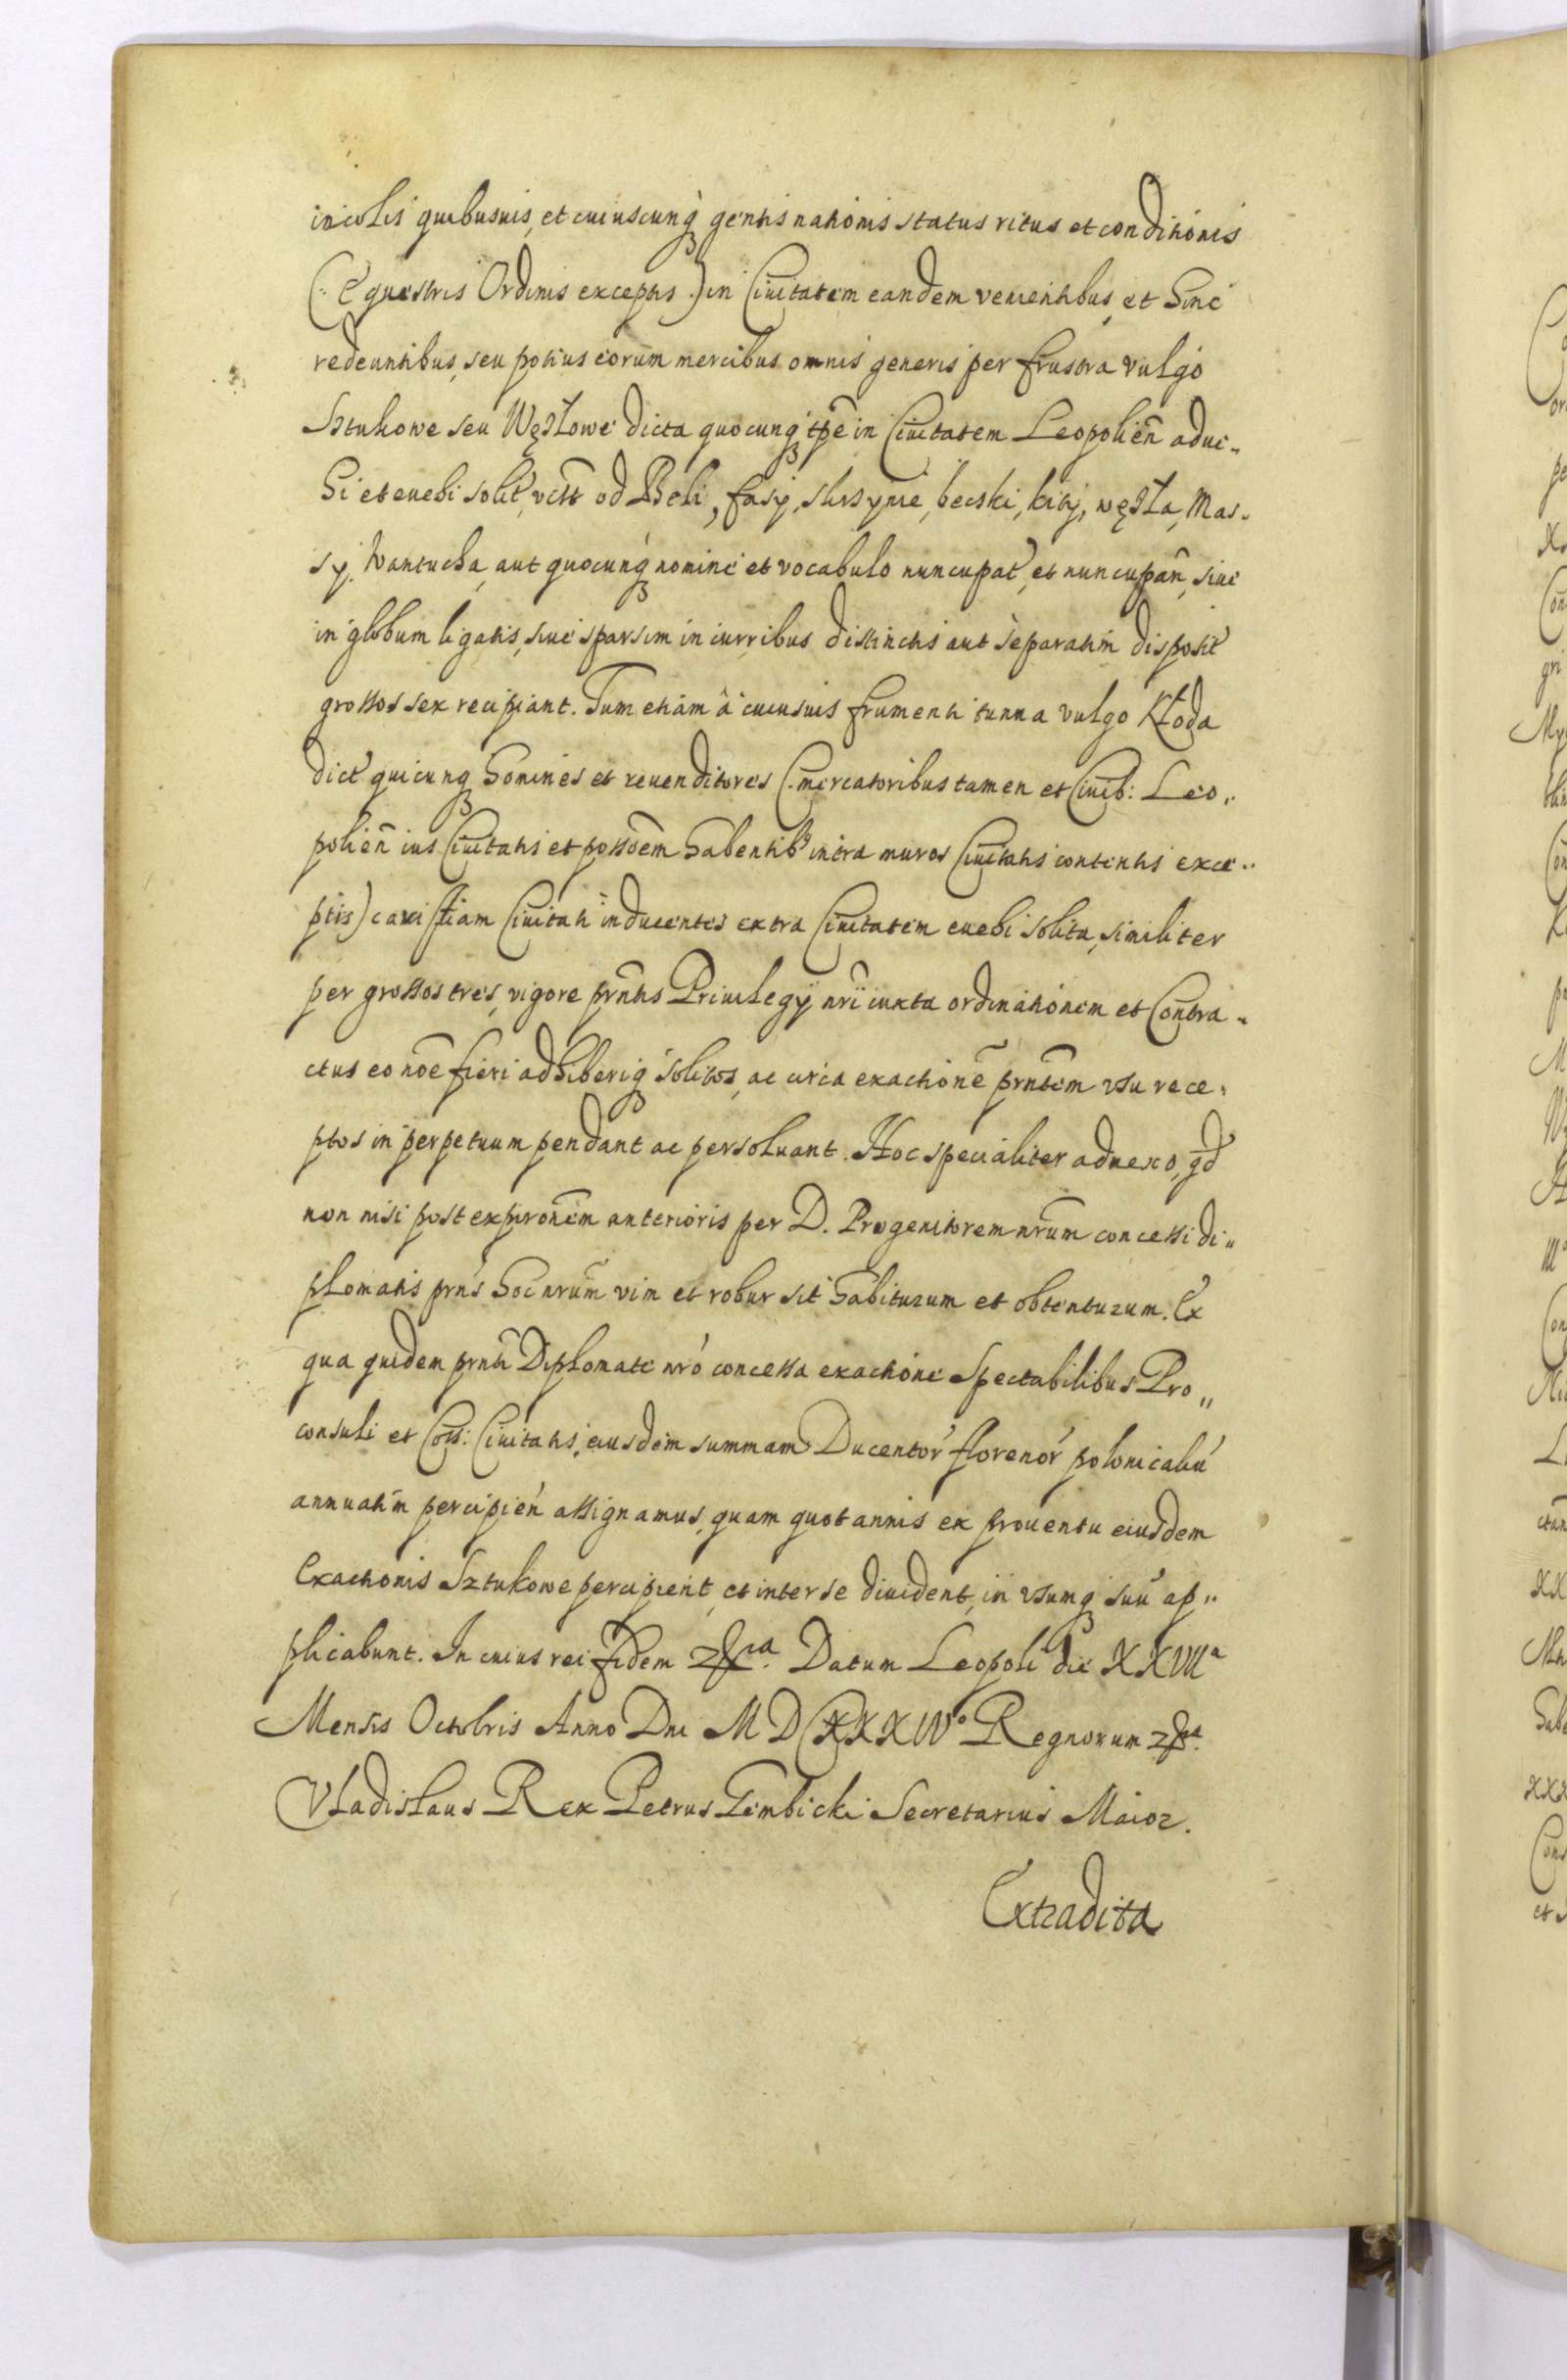 incolis quibusuis, et cuiuscunq gentis nationis status ritus et conditionis
(: Equestris Ordinis exceptis :) in Ciuitatem eandem venientibus, et hinc
redeuntibus, seu potius eorum mercibus omnis generis per frustra vulgo
Sztukowe seu Węzłowe dicta quocunq tpe in Ciuitatem Leopolien adue-
hi et euehi solit, vctt od Beli, fasy, skrzynie, beczki, kity, węzła, Mas-
sy. Wantucha, aut quocunq nomine et vocabulo nuncupat, et nuncupan, siue
in globum ligatis, siue sparsim in curribus distinctis aut separatim disposit
grossos sex recipiant. Tum etiam à cuiusuis frumenti tunna vulgo Kłoda
dict quicunq homines et reuenditores (: mercatoribus tamen et Ciuib: Leo-
polien ius Ciuitatis et possoem habentib intra muros Ciuitatis contentis exce-
ptis) caristiam Ciuitati inducentes extra Ciuitatem euehi solita, similiter
per grossos tres, vigore prntis Priuilegÿ nri iuxta ordinationem et Contra-
ctus eo noe fieri adhiberiq solitos, ac circa exactione prntem vsu rece-
ptos in perpetuum pendant ac persoluant. Hoc specialiter adnexo, qd
non nisi post expironem anterioris per D. Progenitorem nrum concessi di-
plomatis prns hoc nrum vim et robur sit habiturum et obtenturum. Ex
qua quidem prnti Diplomate nro concessa exactione Spectabilibus Pro-
consuli et Coss: Ciuitatis eiusdem summam Ducentor florenor polonicaliu
annuatim percipien assignamus, quam quotannis ex prouentu eiusdem
Exactionis Sztukowe percipient, et inter se diuident, in vsumq suu ap-
plicabunt. In cuius rei fidem &ca. Datum Leopoli die XXVIIa
Mensis Octobris Anno Dni MDCXXXIVo Regnorum &ca.
Vladislaus Rex Petrus Gembicki Secretarius Maior.
Extradita